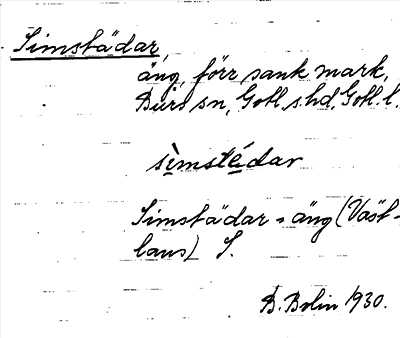 Simstädar,
äng, förr sank mark,
Burs sn, Gotl. s. hd, Gotl. l.
sìmstédar
Simstädar = äng (Väst-
laus) S.
B. Bolin 1930.